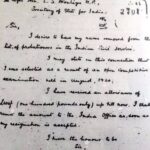 E.S. Montagu M.P.,
Secretary of State for India.
Sir,
I desire to have my name removed from the
list of probationers in the Indian Civil Service.
I may state in this connection that
I was selected as a result of an open competitive
examination held in August, 1920.
I have received an allowance of
£100/- (one hundred pounds only) up till now. I shall
remit the amount to the India Office as soon as
my resignation is accepted.
I have the honour to be
Sir